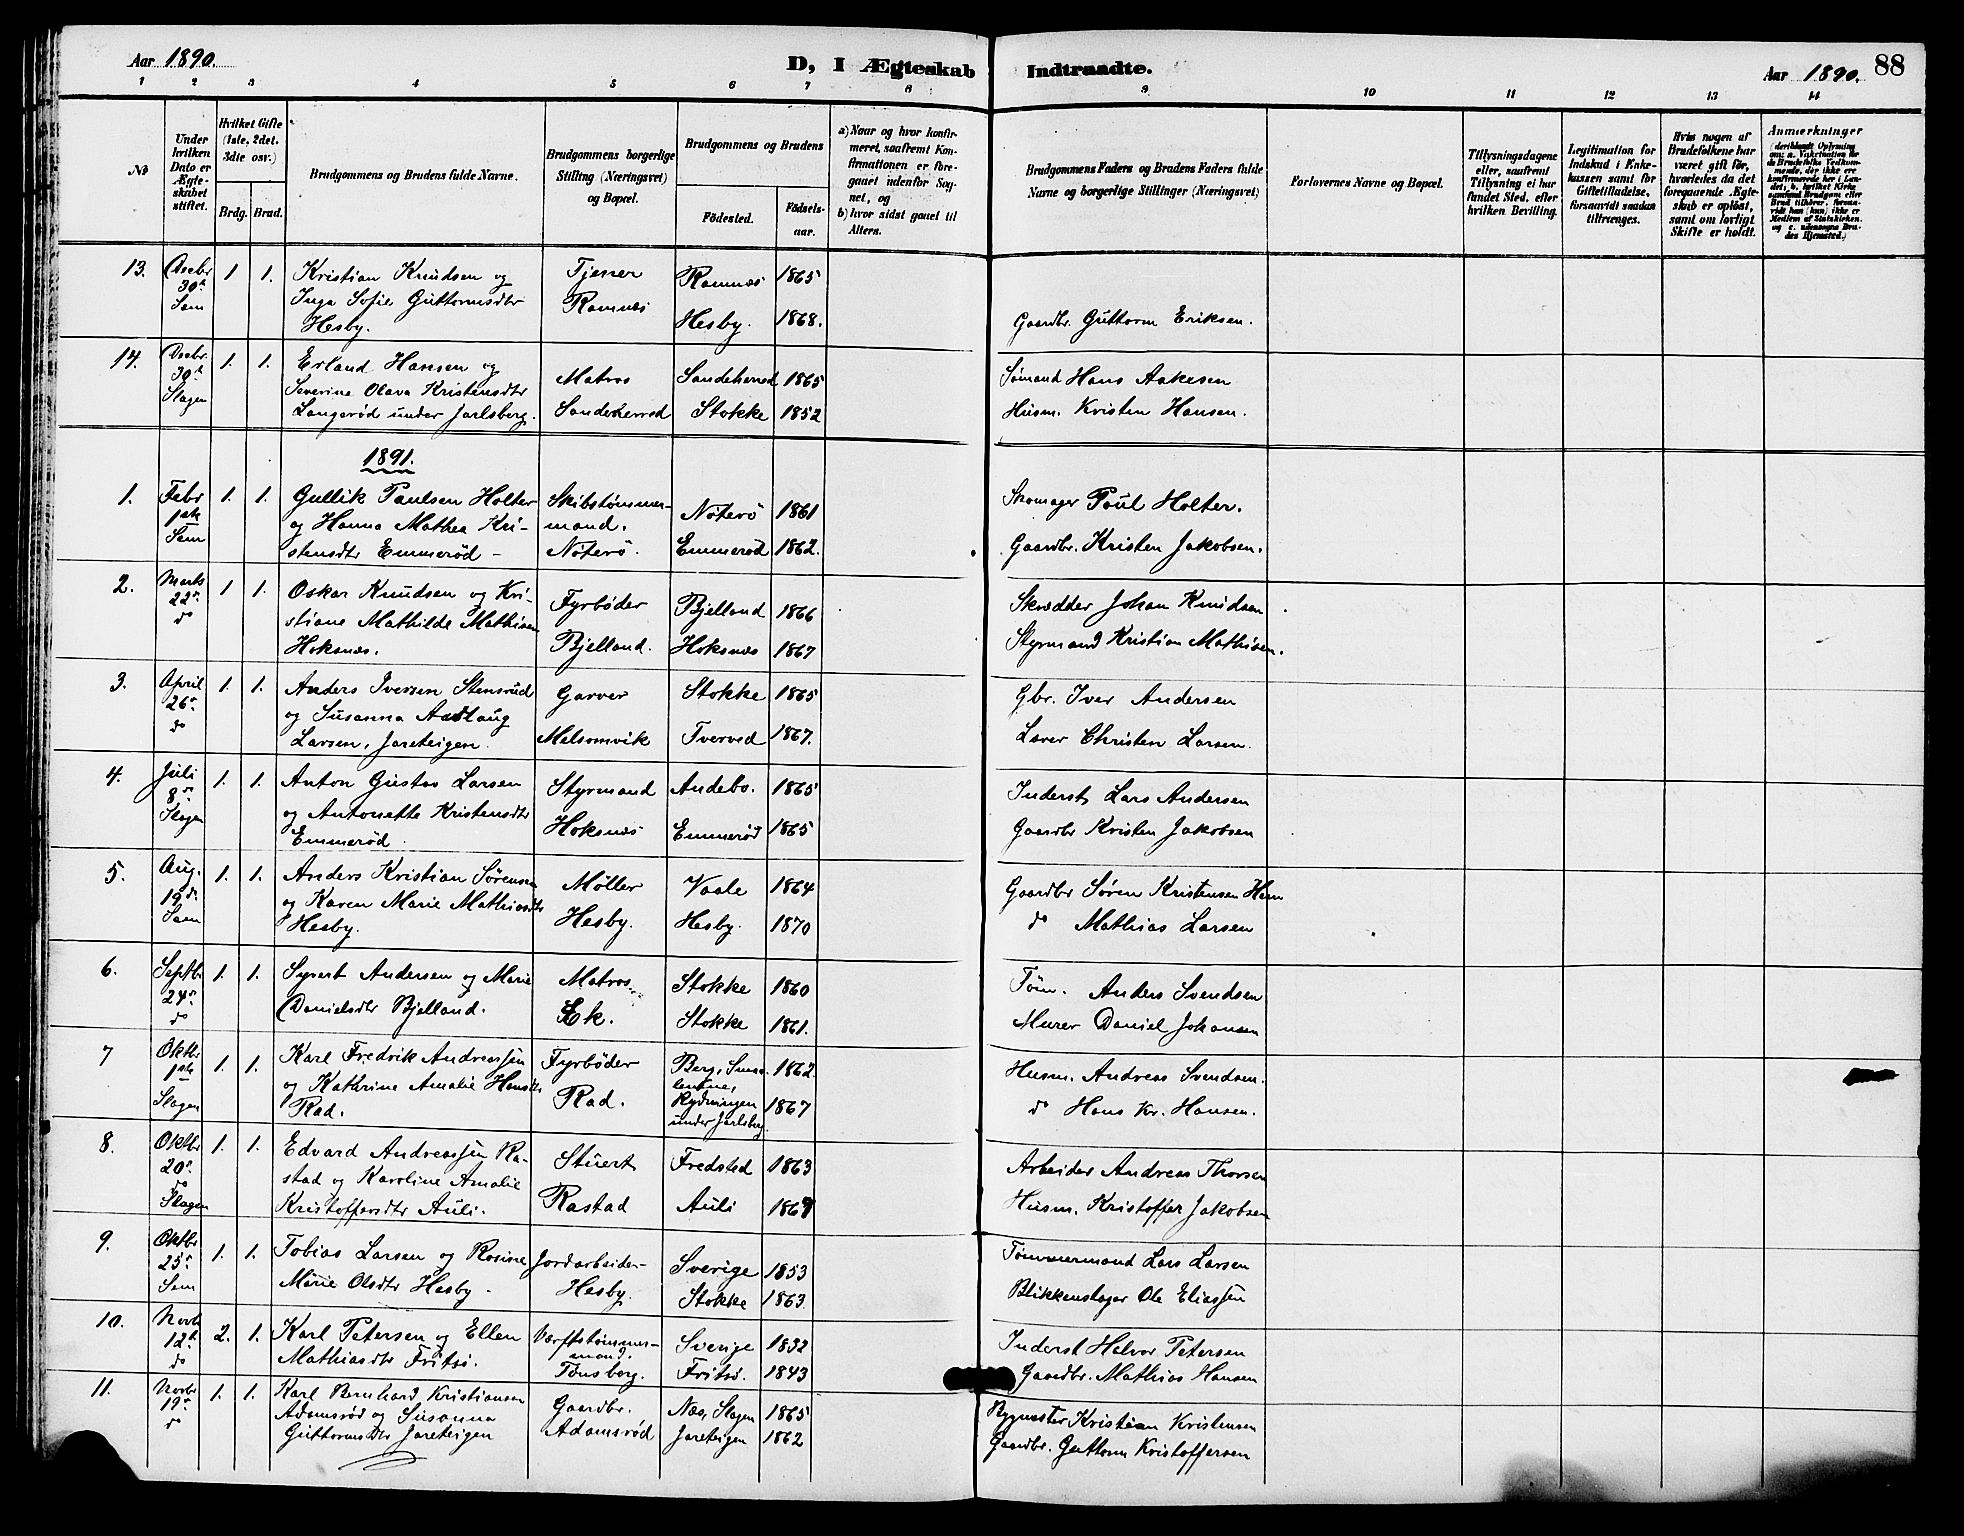 Aar 1890.
D, I Ægteskab
Indtraadte.
Aar 1890. 88
1 2 3 4 5 6 7 8 9 10 11 12 13 14
No
Under hvilken Dato er Ægteskabet stiftet.
Hvilket Gifte (1ste, 2det, 3die osv.)
Brdg. Brud.
Brudgommens og Brudens fulde Navne.
Brudgommens borgerlige Stilling (Næringsvei) og Bopæl.
Brudgommens og Brudens
Fødested.
Fødselsaar.
a) Naar og hvor konfirmeret, saafremt Konfirmationen er foregaaet udenfor Sognet, og
b) hvor sidst gaaet til Alters.
Brudgommens Faders og Brudens Faders fulde Navne og borgerlige Stillinger (Næringsvei)
Forlovernes Navne og Bopæl.
Tillysningsdagene eller, saafremt Tillysning ei har fundet Sted, efter hvilken Bevilling.
Legitimation for Indskud i Enkekassen samt for Giftetilladelse, forsaavidt saadan tiltrænges.
Hvis nogen af Brudefolkene har været gift før, hvorledes da det foregaaende Ægteskab er opløst, samt om lovligt Skifte er holdt.
Anmærkninger
13. Decbr 30te Sem 1 1. Kristian Knudsen og
Inga Sofie Guttormsdtr
Hesby.
Tjener
Ramnæs
Ramnæs 1865
Hesby. 1868.
Gaardbr. Guttorm Eriksen.
14. Decbr. 30te Slagen 1. 1. Erland Hansen og
Severine Olava Kristensdtr
Langerød under Jarlsberg.
Matros
Sandeherred
Sandeherred 1865
Stokke 1852
Sømand Hans Aakesen
Husm. Kristen Hansen.
1891.
1. Febr 1ste Sem 1. 1. Gullik Paulsen Holter
og Hanna Mathea Kri-
stensdtr Emmerød -
Skibstømmer-
mand.
Nøterø.
Nøterø 1861
Emmerød 1862.
Skomager Poul Holter.
Gaardbr. Kristen Jakobsen.
2. Marts 22n do 1 1. Oskar Knudsen og Kri-
stiane Mathilde Mathisen
Hoksnæs.
Fyrbøder
Bjelland.
Bjelland 1866
Hoksnæs 1867
Skrædder Johan Knudsen
Styrmand Kristian Mathisen.
3. April 26n do 1. 1. Anders Iversen Stensrud
og Susanna Aaslaug
Larsen, Jareteigen.
Garver
Melsomvik
Stokke 1865
Tverved 1867.
Gbr. Iver Andersen
Lærer Christen Larsen.
4. Juli 8de Slagen 1. 1. Anton Gustav Larsen
og Antonette Kristensdtr
Emmerød.
Styrmand
Hoksnæs
Andebo. 1865
Emmerød 1865
Inderst Lars Andersen
Gaardbr Kristen Jakobsen
5. Aug. 19de Sem 1. 1. Anders Kristian Sørensen
og Karen Marie Mathiasdtr
Hesby.
Møller
Hesby.
Vaale 1864
Hesby. 1870
Gaardbr Søren Kristensen Hem
do Mathias Larsen
6. Septbr 24n do 1. 1. Syvert Andersen og Marie
Danielsdtr Bjelland.
Matros
Ek.
Stokke 1860
Stokke 1861.
Tøm. Anders Svendsen
Murer Daniel Johansen
7 Oktbr 1ste Slagen 1. 1. Karl Fredrik Andreassen
og Kathrine Amalie Hansdtr
Rad.
Fyrbøder
Rad.
Berg, Smaa- 1862.
lenene,
Rydningen 1867
under Jarlsberg.
Husm. Andreas Svendsen.
do Hans Kr. Hansen.
8. Oktbr 20n do Slagen 1. 1. Edvard Andreassen Ra-
stad og Karoline Amalie
Kristoffersdtr Auli.
Stuert
Rastad
Fredsted 1863
Auli 1869
Arbeider Andreas Thorsen
Husm. Kristoffer Jakobsen
9. Oktbr 25n Sem 1. 1. Tobias Larsen og Rosine
Marie Olsdtr Hesby.
Jordarbeider
Hesby.
Sverige 1853
Stokke 1863.
Tømmermand Lars Larsen
Blikkenslager Ole Eliassen
10. Novb 12te do 2. 1. Karl Petersen og Ellen
Mathiasdtr Fritsø.
Værftstømmer-
mand.
Tønsberg.
Sverige 1832
Fritsø. 1843
Inderst Halvor Petersen
Gaardbr. Mathias Hansen
11. Novbr 19n do 1. 1. Karl Bernhard Kristiansen
Adamsrød og Susanna
Guttormsdtr Jareteigen
Gaardbr.
Adamsrød
Næs, Slagen 1865
Jareteigen 1862
Bygmester Kristian Kristensen
Gaardbr. Guttorm Kristoffersen